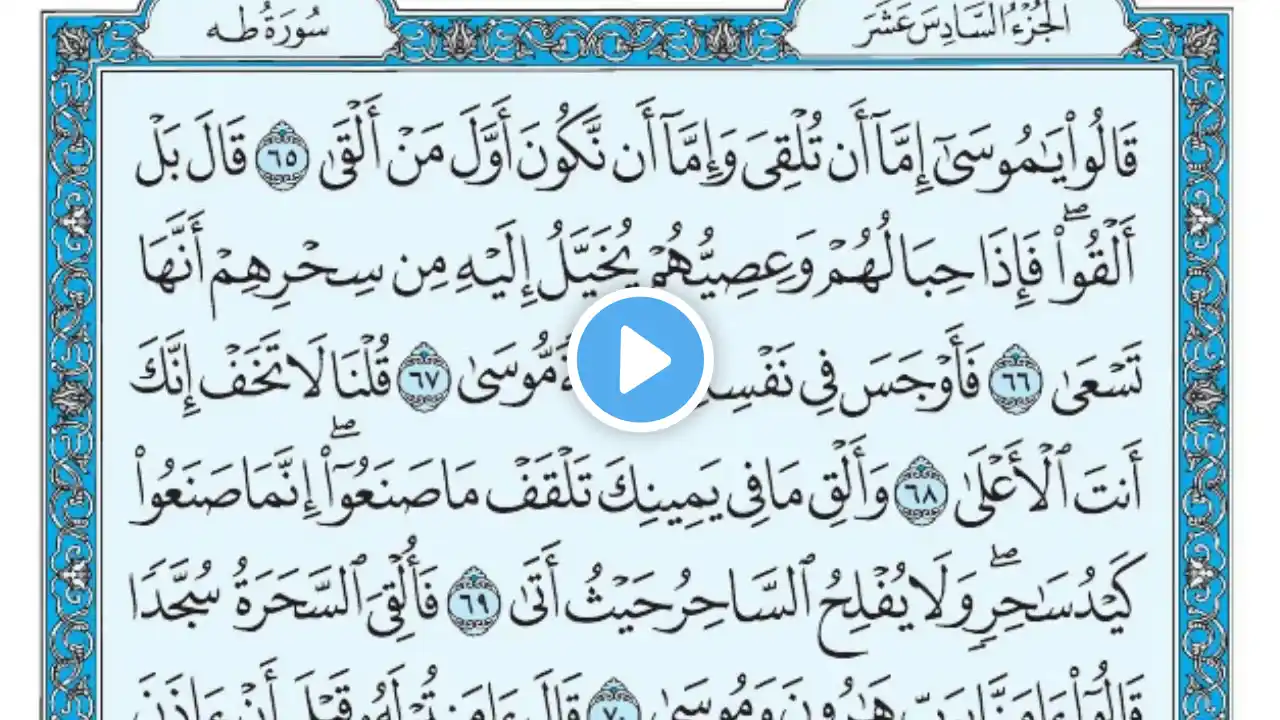 الجُزْءُ السَّادِسَ عَشَرَ
سُورَةُ طه
قَالُوا۟ يَـٰمُوسَىٰٓ إِمَّآ أَن تُلْقِىَ وَإِمَّآ أَن نَّكُونَ أَوَّلَ مَنْ أَلْقَىٰ ٦٥ قَالَ بَلْ
أَلْقُوا۟ۖ فَإِذَا حِبَالُهُمْ وَعِصِيُّهُمْ يُخَيَّلُ إِلَيْهِ مِن سِحْرِهِمْ أَنَّهَا
تَسْعَىٰ ٦٦ فَأَوْجَسَ فِى مُّوسَىٰ ٦٧ قُلْنَا لَا تَخَفْ إِنَّكَ
أَنتَ ٱلْأَعْلَىٰ ٦٨ وَأَلْقِ مَا فِى يَمِينِكَ تَلْقَفْ مَا صَنَعُوٓا۟ۖ إِنَّمَا صَنَعُوا۟
كَيْدُ سَـٰحِرٍۖ وَلَا يُفْلِحُ ٱلسَّاحِرُ حَيْثُ أَتَىٰ ٦٩ فَأُلْقِىَ ٱلسَّحَرَةُ سُجَّدًا
قَالُوٓا۟ ءَامَنَّا بِرَبِّ هَـٰرُونَ وَمُوسَىٰ ٧٠ قَالَ ءَامَنتُمْ لَهُۥ قَبْلَ أَنْ ءَاذَنَ